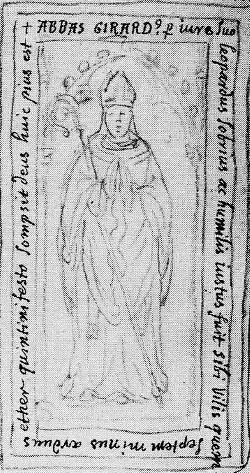 + ABBAS GIRARD9 p iure suo
leopardus sobrius ac humilis iustus fuit sibi vilis quem
septem minus arduus
ether quintini festo sompsit deus huic pius est